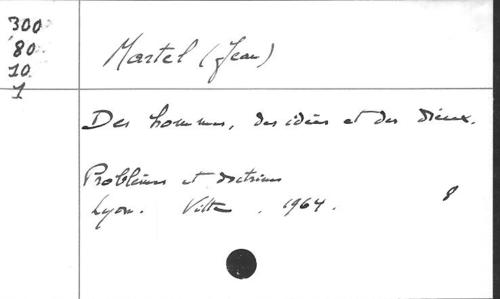 300
80
10
1
Martel (Jean)
Des hommes, des idées et des dieux.
Problèmes et doctrines
Lyon. Vitte. 1964. 8